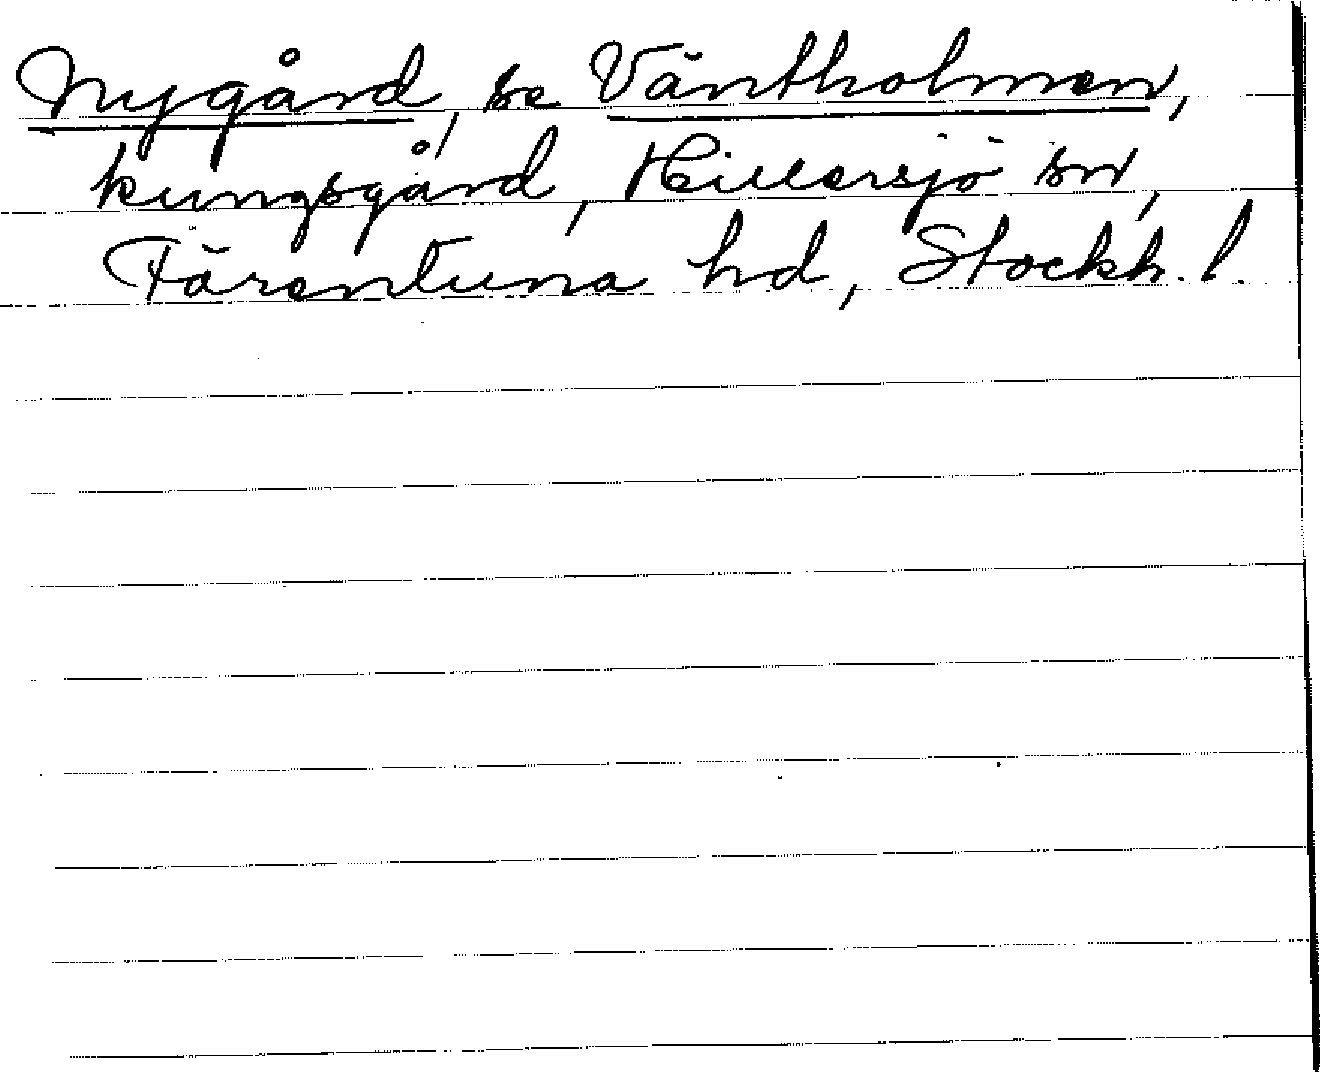 Nygård, se Väntholmen,
kungsgård, Hillersjö sn,
Färentuna hd, Stockh. l.